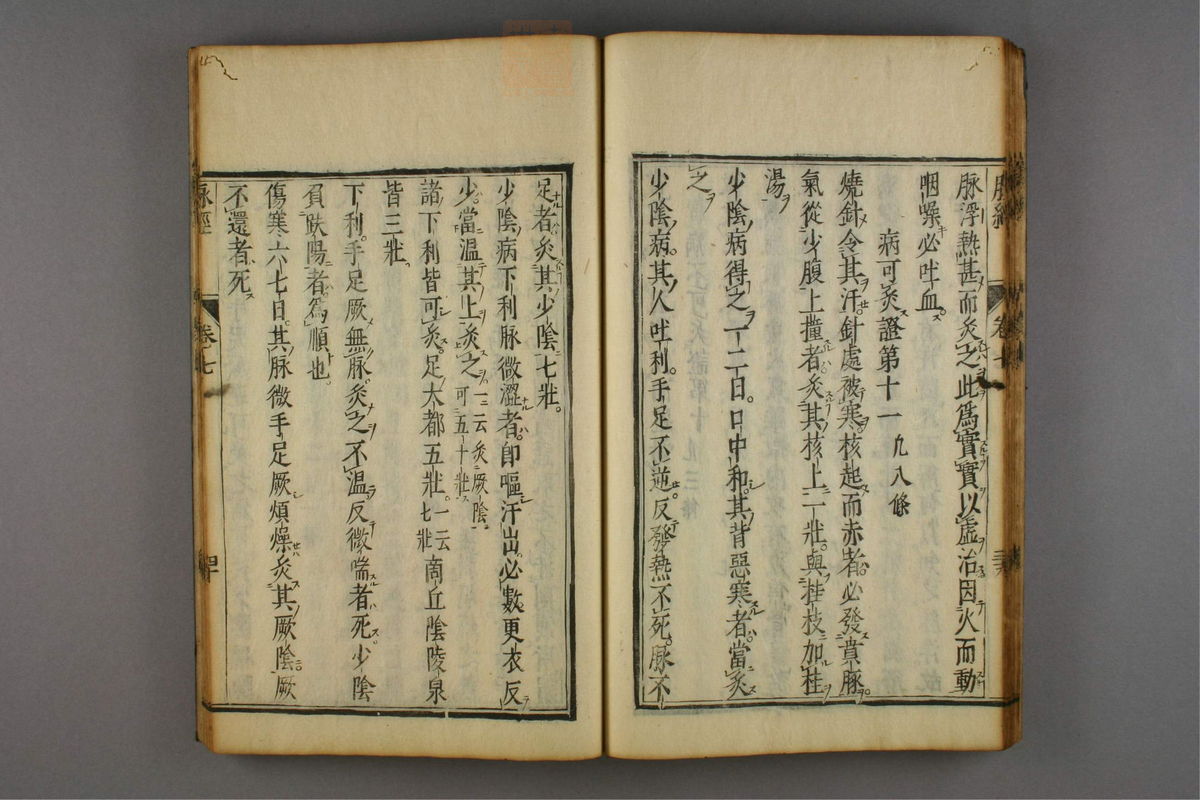 脉浮熱甚而灸之此爲實實以虛治因火而動
咽燥必吐血
病可灸證第十一 凡八條
燒針令其汗針處被寒核起而赤者必發賁豚
氣從少腹上撞者灸其核上一壯與桂枝加桂
湯
少陰病得之一二日口中和其背惡寒者當灸
之
少陰病其人吐利手足不逆反發熱不死脉不
足者灸其少陰七壯
少陰病下利脉微澀者卽嘔汗出必數更衣反
少當温其上灸之一云灸厥陰可五十壯
諸下利皆可灸足大都五壯一云七壯商丘陰陵泉
皆三壯
下利手足厥無脉灸之不温反微喘者死少陰
負趺陽者爲順也
傷寒六七日其脉微手足厥煩燥灸其厥陰厥
不還者死
脉經 卷七